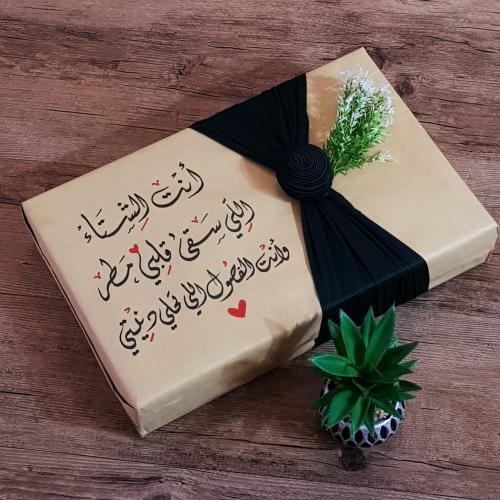 أنت الشتاء
اللي سقى قلبي مطر
وانت الفصول اللي تحلي دنيتي